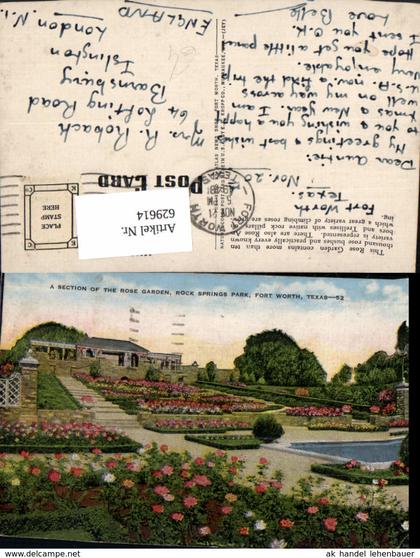 Fort Worth
Texas
Nov. 20
Dear Auntie:
My greetings & best wishes
to you & wishing you a happy
Xmas & New year. I am
well on my way across
U.S.A. now & find the trip
very enjoyable.
Hope you get a little parcel
I sent you O.K.
Love Belle
This Rose Garden contains more than ten
thousand rose bushes and practically every known
variety is represented. There are also Rose Arbors
and Trellises and native rock pillars around
which a great variety of climbing roses are
POST CARD
PLACE
STAMP
HERE
FORT WORTH
NOV 21
5 PM
TEXAS
Mrs. R. Robach
64 Lofting Road
Barnsbury
Islington
London N.1.
ENGLAND
Artikel Nr.
629614
A SECTION OF THE ROSE GARDEN, ROCK SPRINGS PARK, FORT WORTH, TEXAS—52
© ak handel lehenbauer